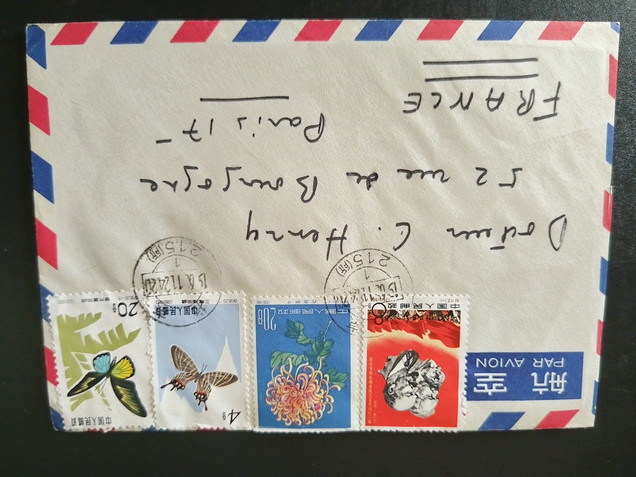 航空
PAR AVION
中国人民邮政
8
20分
中国人民邮政
4分
中国人民邮政
20分
中国人民邮政
Docteur C. Henry
52 rue de Bourgogne
Paris 17 -
FRANCE